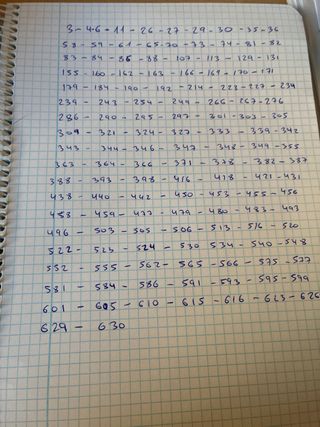 3-4-6-11-26-27-29-30-35-36
53-59-61-65-70-73-74-81-82
83-84-86-88-107-113-129-131
155-160-162-163-166-169-170-171
179-184-190-192-214-222-227-234
239-243-254-249-266-267-276
286-290-295-297-301-303-305
309-321-324-327-333-339-342
343-344-346-347-348-349-355
363-364-366-371-378-382-387
388-393-398-416-418-421-431
438-440-442-450-453-455-456
458-459-477-479-480-483-493
496-503-505-506-513-516-520
522-523-524-530 534-540-548
552-555-562-565-566-575-577
581-584-586-591-593-595-599
601-605-610-615-616-623-626
629-630